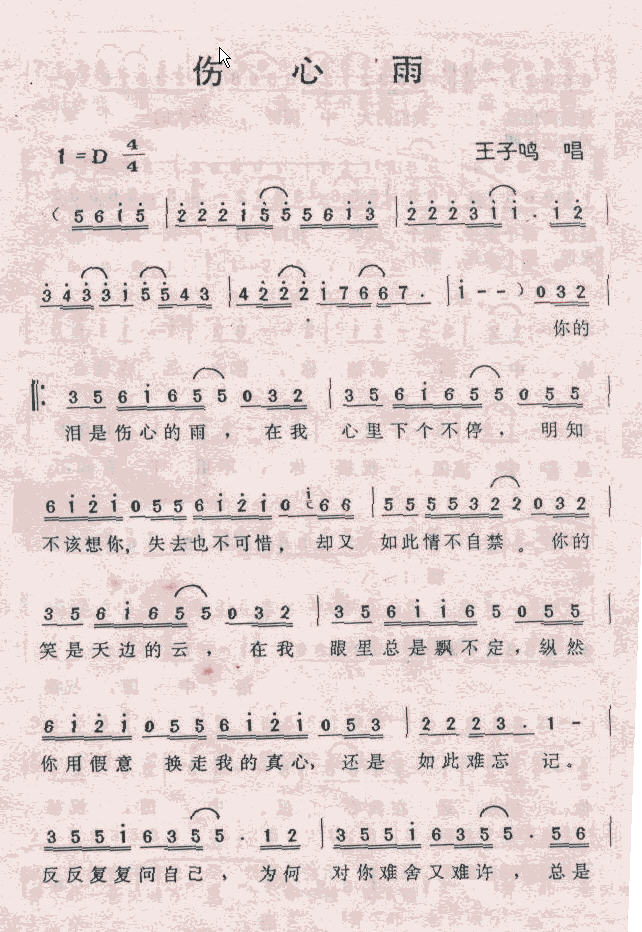 伤 心 雨
1 = D 4/4
王子鸣 唱
( 5 6 i 5 | 2 2 2 i 5 5 5 6 i 3 | 2 2 2 3 i i . i 2 |
3 4 3 3 i 5 5 4 3 | 4 2 2 2 i 7 6 6 7 . | i - - ) 0 3 2 |
你的
‖: 3 5 6 i 6 5 5 0 3 2 | 3 5 6 i 6 5 5 0 5 5 |
泪是伤心的雨，在我 心里下个不停，明知
6 i 2 i 0 5 5 6 i 2 i 0 i 6 6 | 5 5 5 5 3 2 2 0 3 2 |
不该想你，失去也不可惜，却又 如此情不自禁。你的
3 5 6 i 6 5 5 0 3 2 | 3 5 6 i i 6 5 0 5 5 |
笑是天边的云，在我 眼里总是飘不定，纵然
6 i 2 i 0 5 5 6 i 2 i 0 5 3 | 2 2 2 3 . 1 - |
你用假意 换走我的真心，还是 如此难忘 记。
3 5 5 i 6 3 5 5 . 1 2 | 3 5 5 i 6 3 5 5 . 5 6 |
反反复复问自己，为何 对你难舍又难许，总是